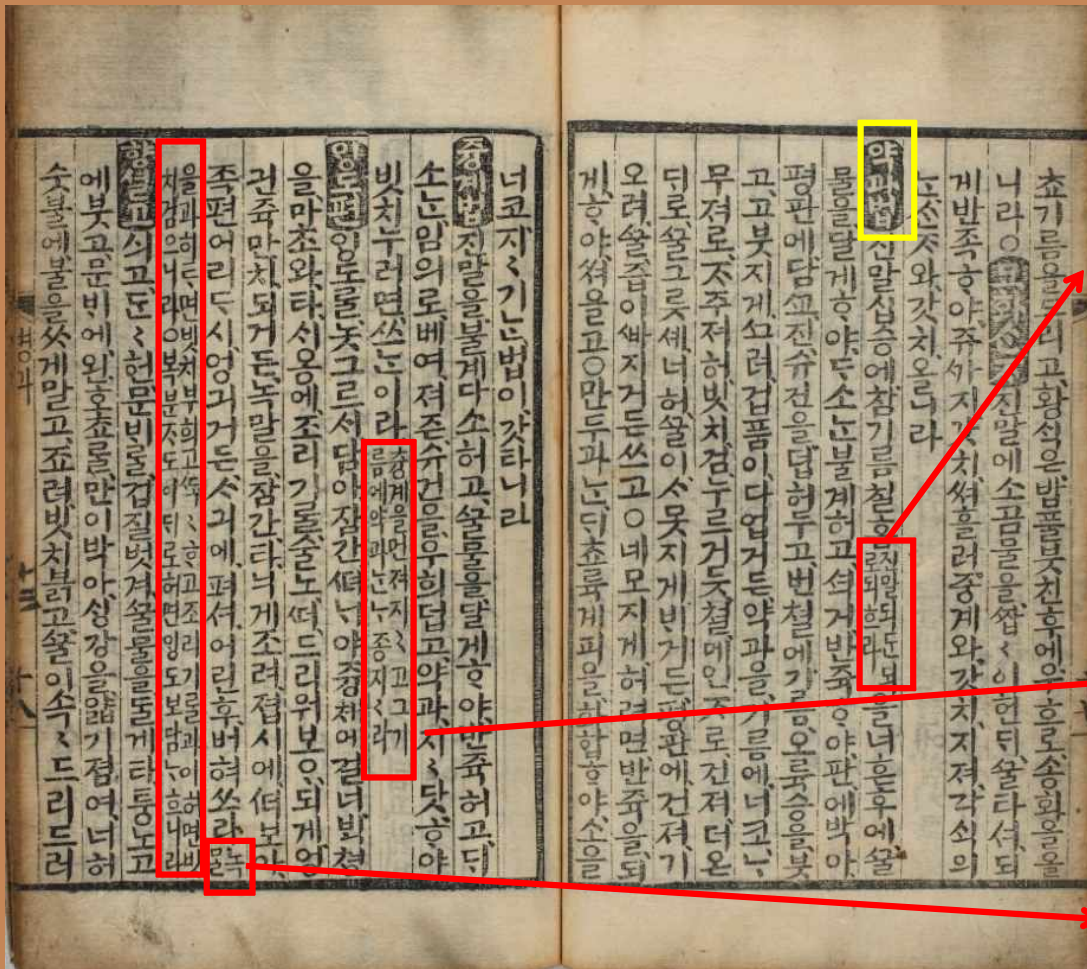 쵸기름을드리고,황식은밥풀붓친후에우흐로송화을을
니라○ 진말에소곰물을,쌉〻이헌뒤,꿀타셔,되
게반죽ᄒᆞ야 갓치,쎠흘러즁계와갓치,지져,각쇠의
갓치,올니라
약과법 진말십승에,참기름칠홉
진말되두되
로되흐라
을너흔후에,꿀
물을달게ᄒᆞ야,드소ᄂᆞᆫ불계허고,셕거,반죽ᄒᆞ야,판에박아,
평판에담고,진슈젼을덥허두고,번쳘에기름,오륙승을붓
고,고붓지게ᄭᅳ려,겁품이,다업거든,약과을,기름에,너코,ᄂᆞ
무져로,ᄌᆞ주져허,빗치,검누르거든,쳘메인ᄌᆞ로건져,더온
뒤로,꿀그릇셰,너허,꿀이,ᄉᆞ못지게,비거든,평판에,건져,기
오려,꿀즙이ᄲᅡ지거든쓰고○네모지게,허려면반쥭을,되
게,ᄒᆞ야,쎠을고○만두과ᄂᆞᆫ뒤쵸륙게피을,화합ᄒᆞ야,소을
너코지〻기ᄂᆞᆫ법이,갓타니라
즁계법 진말을불계다소허고,꿀물을달게ᄒᆞ야,반쥭허고,뒤
소ᄂᆞᆫ임의로,베여,져즌슈건을,우희덥고약과,지〻닷ᄒᆞ야
빗치누러면,쓰ᄂᆞᆫ이라
즁계을먼져지〻고그기
름에약과ᄂᆞᆫᄂᆞ죵지〻라
잉도편 잉도물놋그르셰담아잠간ᄶᅧᄂᆡ야즁체에걸너ᄇᆡᆨ쳥
을,마초와,타,시옹에,조리기를,술노ᄯᅥ,드리워보아,되게엉
긘쥭만치,되거든,녹말을,잠간,타,늬게조려,졉시에,ᄯᅥ보아,
족편어리드시,엉긔거든,ᄉᆞ긔에,펴셔,어린후,버혀쓰라
녹
말
을과히드면빗치부희고ᄯᅥᆨ〻ᄒᆞ고조리기를과이허면빗
치검으니라○복분ᄌᆞ도이뒤로허면잉도보담ᄂᆞ흐니라
향셜고 싀고,둔〻헌문비를,겁질벗겨,꿀물을돌게타,통노고
에붓고,문비에,왼호쵸를,만이박아,ᄉᆡᆼ강을,얇기졈여,너허
숫불에,불을,ᄊᆞ게말고,죠려,빗치붉고,꿀이속〻드리드러
병과
十三
十八